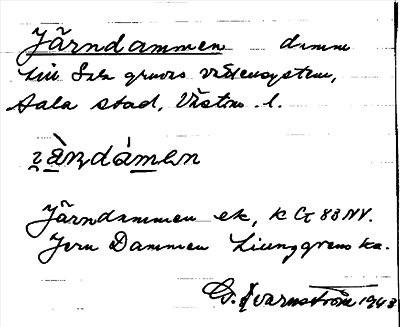 Järndammen damm
till Sala gruvas vattensystem,
Sala stad, Västm. l.
jä̀ṇdámen
Järndammen ek, k G 83 NV.
Jern Dammen Liunggrens ka.
G. Kvarnström 1943